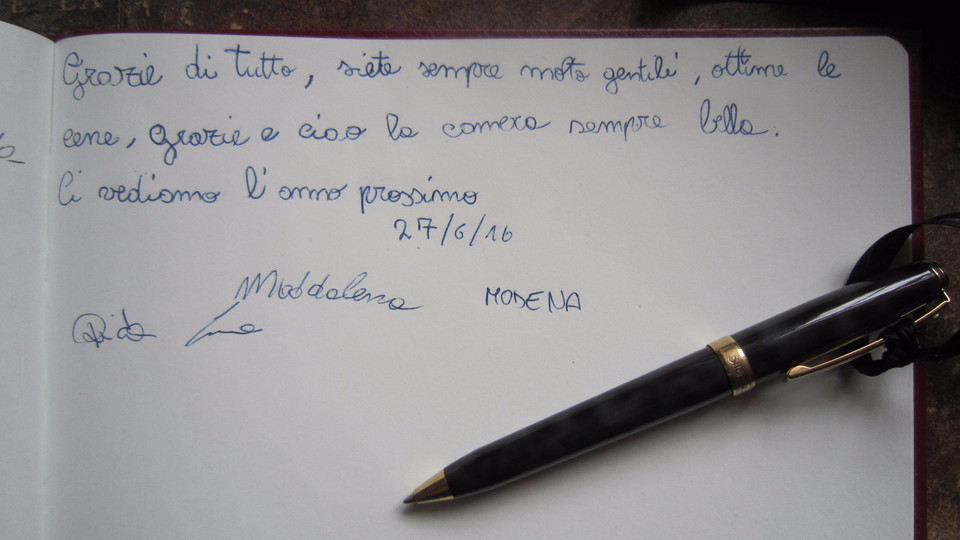 Grazie di tutto, siete sempre molto gentili, ottime le
cene, grazie e ciao la camera sempre bella.
Ci vediamo l'anno prossimo
27/6/16
Maddalena MODENA